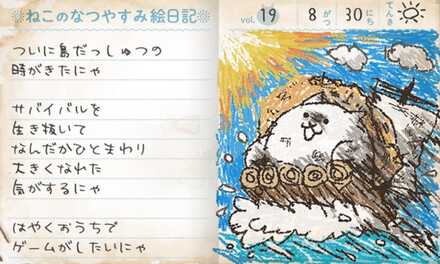 ねこのなつやすみ絵日記
vol. 19 8がつ 30にち てんき
ついに島だっしゅつの
時がきたにゃ
サバイバルを
生き抜いて
なんだかひとまわり
大きくなれた
気がするにゃ
はやくおうちで
ゲームがしたいにゃ